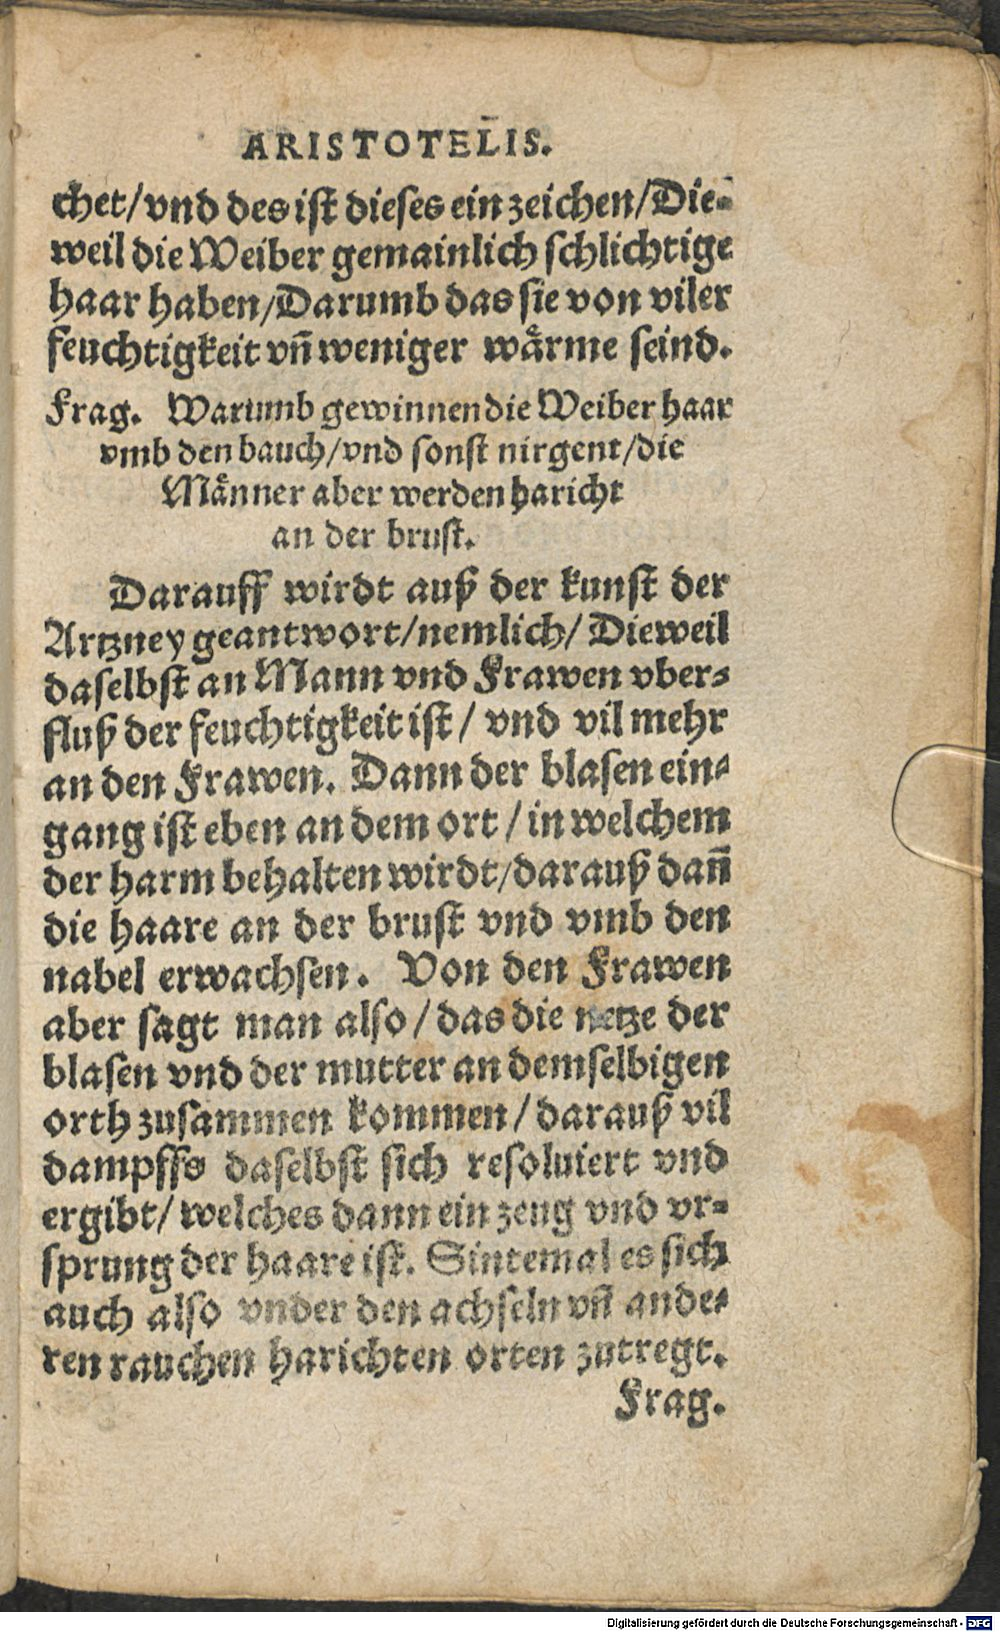 ARISTOTELIS.
chet/vnd des ist dieses ein zeichen/Die-
weil die Weiber gemainlich schlichtige
haar haben/Darumb das sie von viler
feuchtigkeit vn̄ weniger waͤrme seind.
Frag. Warumb gewinnen die Weiber haar
vmb den bauch/vnd sonst nirgent/die
Maͤnner aber werden haricht
an der brust.
Darauff wirdt auß der kunst der
Artzney geantwort/nemlich/Dieweil
daselbst an Mann vnd Frawen vber-
fluß der feuchtigkeit ist/ vnd vil mehr
an den Frawen. Dann der blasen ein-
gang ist eben an dem ort/in welchem
der harm behalten wirdt/darauß dan̄
die haare an der brust vnd vmb den
nabel erwachsen. Von den Frawen
aber sagt man also/das die netze der
blasen vnd der mutter an demselbigen
orth zusammen kommen/darauß vil
dampffs daselbst sich resoluiert vnd
ergibt/welches dann ein zeug vnd vr-
sprung der haare ist. Sintemal es sich
auch also vnder den achseln vn̄ ande-
ren rauchen harichten orten zutregt.
Frag.
Digitalisierung gefördert durch die Deutsche Forschungsgemeinschaft - DFG